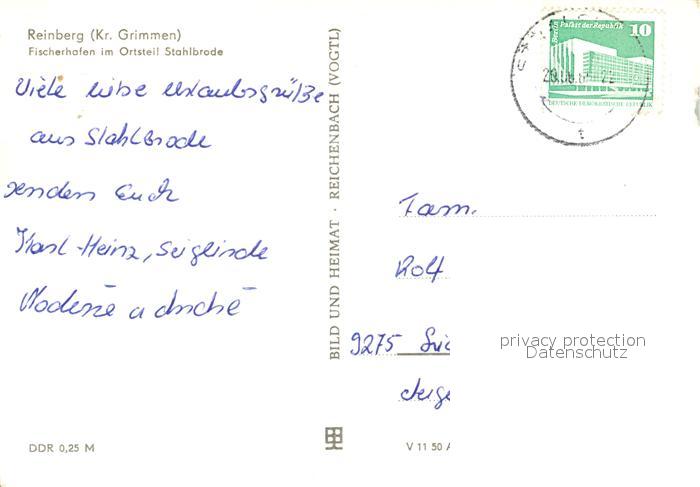 Reinberg (Kr. Grimmen)
Fischerhafen im Ortsteil Stahlbrode
Viele liebe Urlaubsgrüße
aus Stahlbrode
senden Euch
Karl-Heinz, Sieglinde
BILD UND HEIMAT · REICHENBACH (VOGTL)
Berlin Palast der Republik
10
DEUTSCHE DEMOKRATISCHE REPUBLIK
t
Fam.
Rolf
9275
privacy protection
Datenschutz
DDR 0,25 M
V 11 50 A